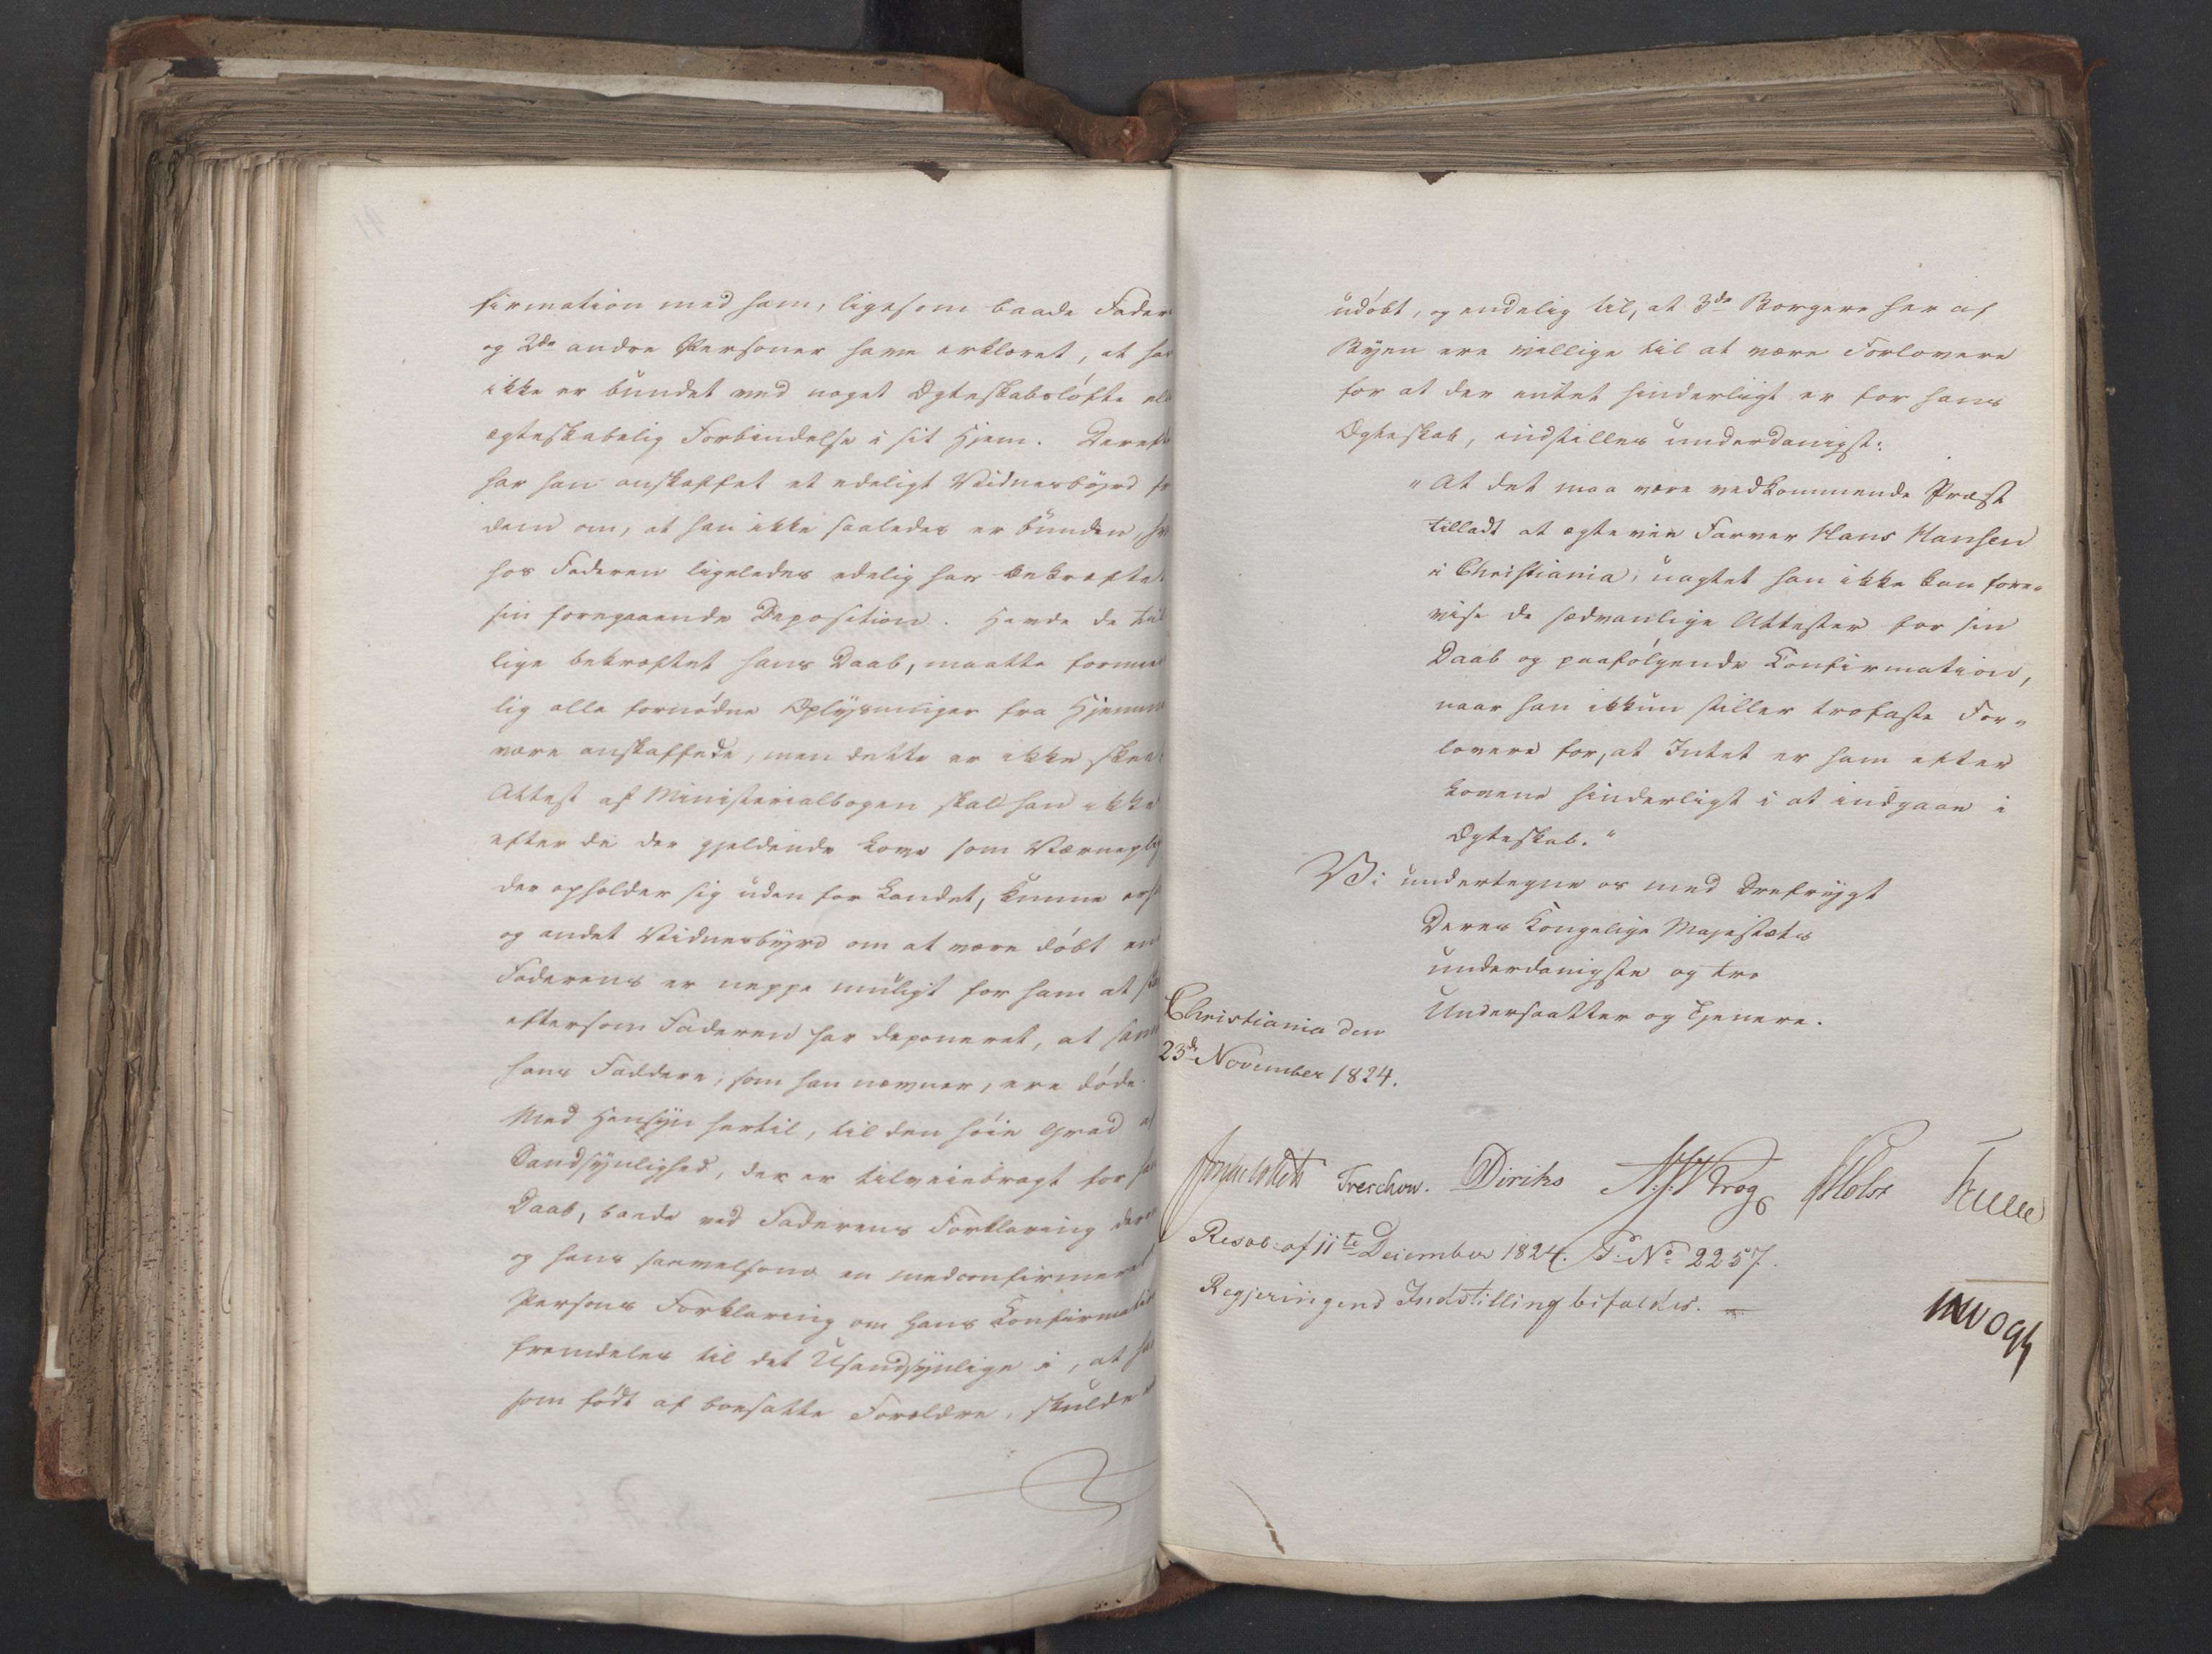 firmation med ham, ligesom baade Fader
og 2de andre Personer have erklæret, at han
ikke er bundet ved noget Ægteskabsløfte ell
ægteskabelig Forbindelse i sit Hjem. Dereft
har han anskaffet et edeligt Vidnesbyrd fr
dem om, at han ikke saaledes er bunden, hv
hos Faderen ligeledes edelig har bekræftet
sin foregaaende Deposition. Havde de
lige bekræftet hans Daab, maatte formee
lig alle fornødne Oplysninger fra Hjemme
være anskaffede, men dette er ikke skeet
Attest af Ministerialbogen skal han ikke
efter de der gjeldende Love som Værneplig
der opholder sig uden for Landet, kunne erh
og andet Vidnesbyrd om at være døbt end
Faderens er neppe muligt for ham at
eftersom Faderen har deponeret, at
hans Faddere, som han nævner, ere døde.
Med Hensyn hertil, til den høie Grad af
Sandsynlighed, der er tilveiebragt for han
Daab, baade ved Faderens Forklaring derom
og hans saavelsom en medconfirmeret
Persons Forklaring om hans Confirmation
fremdeles til det Usandsynlige i, at han
som født af boesatte Forældre, skulde
udøbt, og endelig til, at 3de Borgere her af
Byen ere villige til at være Forlovere
for at der intet hinderligt er for hans
Ægteskab, indstilles underdanigst:
"At det maa være vedkommende Præst
tilladt at ægtevie Farver Hans Hansen
i Christiania, uagtet han ikke kan fore-
vise de sædvanlige Attester for sin
Daab og paafølgende Confirmation,
naar han ikkun stiller trofaste For-
lovere for, at Intet er ham efter
Lovene hinderligt i at indgaae i
Ægteskab."
Vi undertegne os med Ærefrygt
Deres Kongelige Majestæts
underdanigste og tro
Undersaatter og Tjenere.
Christiania den
23de November 1824.
Treschow. Diriks Krog Holst
Resol: af 11te December 1824. No 2257.
Regjeringens Indstilling bifaldes.
Vogt